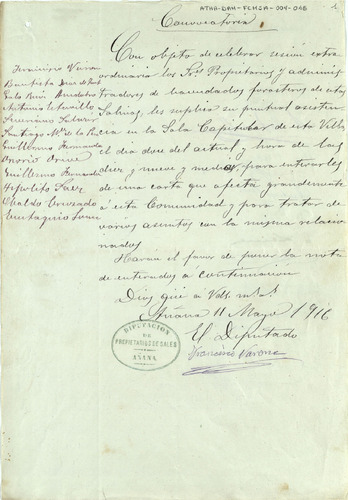 ATHA-DAH-FEMSA-004-046
1
Convocatoria
Con objeto de celebrar sesión extra
ordinaria los Sres Propietarios y adminis
tradores de haciendados forasteros de estas
Salinas, les suplico su puntual asisten
cia en la Sala Capitular de esta Villa
el dia doce del actual y hora de las
diez y nueve y media, para enterarles
de una carta que afecta grandemente
á esta Comunidad y para tratar de
varios asuntos con la misma relacio
nados
Harán el favor de poner la nota
de enterados a continuacion
Dios gue á Vds. m. a.
Añana 11 Mayo 1916
El Diputado
Francisco Varona
DIPUTACION
DE
PROPIETARIOS DE SALES
AÑANA
Francisco Varona
Bautista
Antonio
Saturnino
Santiago
Guillermo Fernandez
Onorio
Guillermo Fernandez
Hipolito Saez
Ubaldo Cruzado
Eustaquio